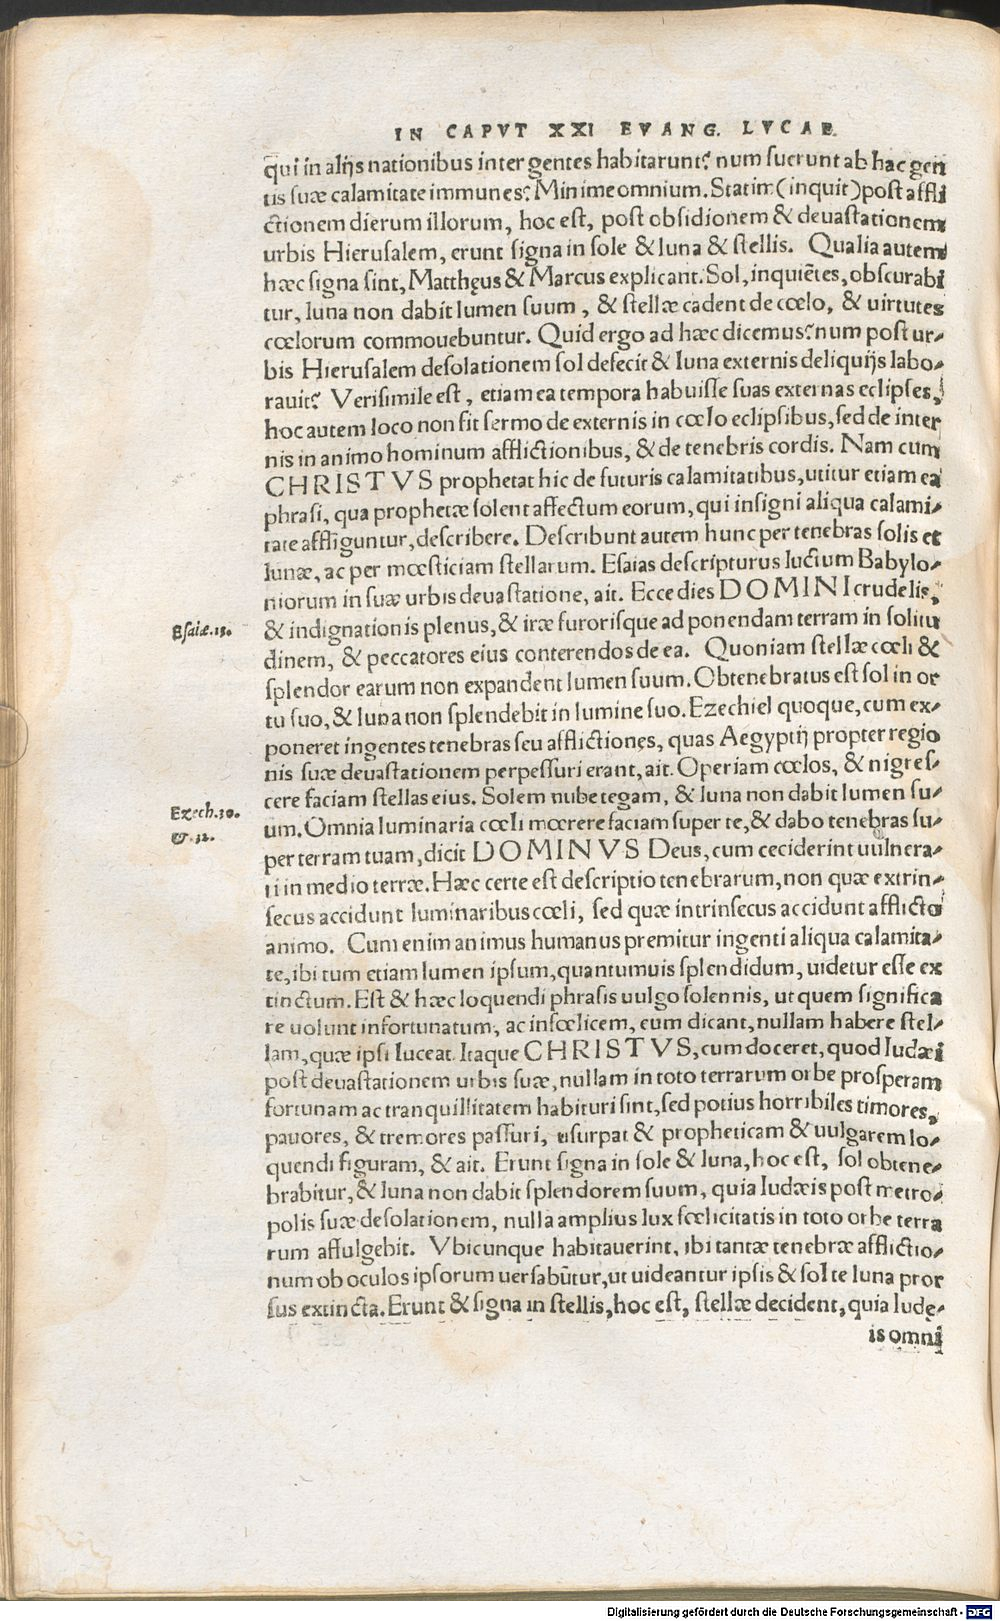 IN CAPVT XXI EVANG. LVCAE.
qui in alijs nationibus inter gentes habitarunt? num fuerunt ab hac gen
tis suæ calamitate immunes? Minime omnium. Statim (inquit) post affli
ctionem dierum illorum, hoc est, post obsidionem & deuastationem
urbis Hierusalem, erunt signa in sole & luna & stellis. Qualia autem
hæc signa sint, Matthęus & Marcus explicant. Sol, inquiẽtes, obscurabi
tur, luna non dabit lumen suum, & stellæ cadent de cœlo, & uirtutes
cœlorum commouebuntur. Quid ergo ad hæc dicemus? num post ur-
bis Hierusalem desolationem sol defecit & luna externis deliquijs labo-
rauit? Verisimile est, etiam ea tempora habuisse suas externas eclipses,
hoc autem loco non fit sermo de externis in cœlo eclipsibus, sed de inter
nis in animo hominum afflictionibus, & de tenebris cordis. Nam cum
CHRISTVS prophetat hic de futuris calamitatibus, utitur etiam ea
phrasi, qua prophetæ solent affectum eorum, qui insigni aliqua calami-
tate affliguntur, describere. Describunt autem hunc per tenebras solis et
lunæ, ac per mœsticiam stellarum. Esaias descripturus luctum Babylo-
niorum in suæ urbis deuastatione, ait. Ecce dies DOMINI crudelis,
Esaiæ.13.
& indignationis plenus, & iræ furorisque ad ponendam terram in solitu
dinem, & peccatores eius conterendos de ea. Quoniam stellæ cœli &
splendor earum non expandent lumen suum. Obtenebratus est sol in or
tu suo, & luna non splendebit in lumine suo. Ezechiel quoque, cum ex-
poneret ingentes tenebras seu afflictiones, quas Aegyptij propter regio
nis suæ deuastationem perpessuri erant, ait. Operiam cœlos, & nigres-
cere faciam stellas eius. Solem nube tegam, & luna non dabit lumen su-
Ezech.30.
&. 32.
um. Omnia luminaria cœli mœrere faciam super te, & dabo tenebras su-
per terram tuam, dicit DOMINVS Deus, cum ceciderint uulnera-
ti in medio terræ. Hæc certe est descriptio tenebrarum, non quæ extrin-
secus accidunt luminaribus cœli, sed quæ intrinsecus accidunt afflicto
animo. Cum enim animus humanus premitur ingenti aliqua calamita-
te, ibi tum etiam lumen ipsum, quantumuis splendidum, uidetur esse ex
tinctum. Est & hæc loquendi phrasis uulgo solennis, ut quem significa
re uolunt infortunatum, ac infœlicem, eum dicant, nullam habere stel-
lam, quæ ipsi luceat. Itaque CHRISTVS, cum doceret, quod Iudæi
post deuastationem urbis suæ, nullam in toto terrarum orbe prosperam
fortunam ac tranquillitatem habituri sint, sed potius horribiles timores,
pauores, & tremores passuri, usurpat & propheticam & uulgarem lo-
quendi figuram, & ait. Erunt signa in sole & luna, hoc est, sol obtene-
brabitur, & luna non dabit splendorem suum, quia Iudæis post metro-
polis suæ desolationem, nulla amplius lux fœlicitatis in toto orbe terra
rum affulgebit. Vbicunque habitauerint, ibi tantæ tenebræ afflictio-
num ob oculos ipsorum uersabũtur, ut uideantur ipsis & sol te luna pror
sus extincta. Erunt & signa in stellis, hoc est, stellæ decident, quia Iudę-
is omni
Digitalisierung gefördert durch die Deutsche Forschungsgemeinschaft - DFG